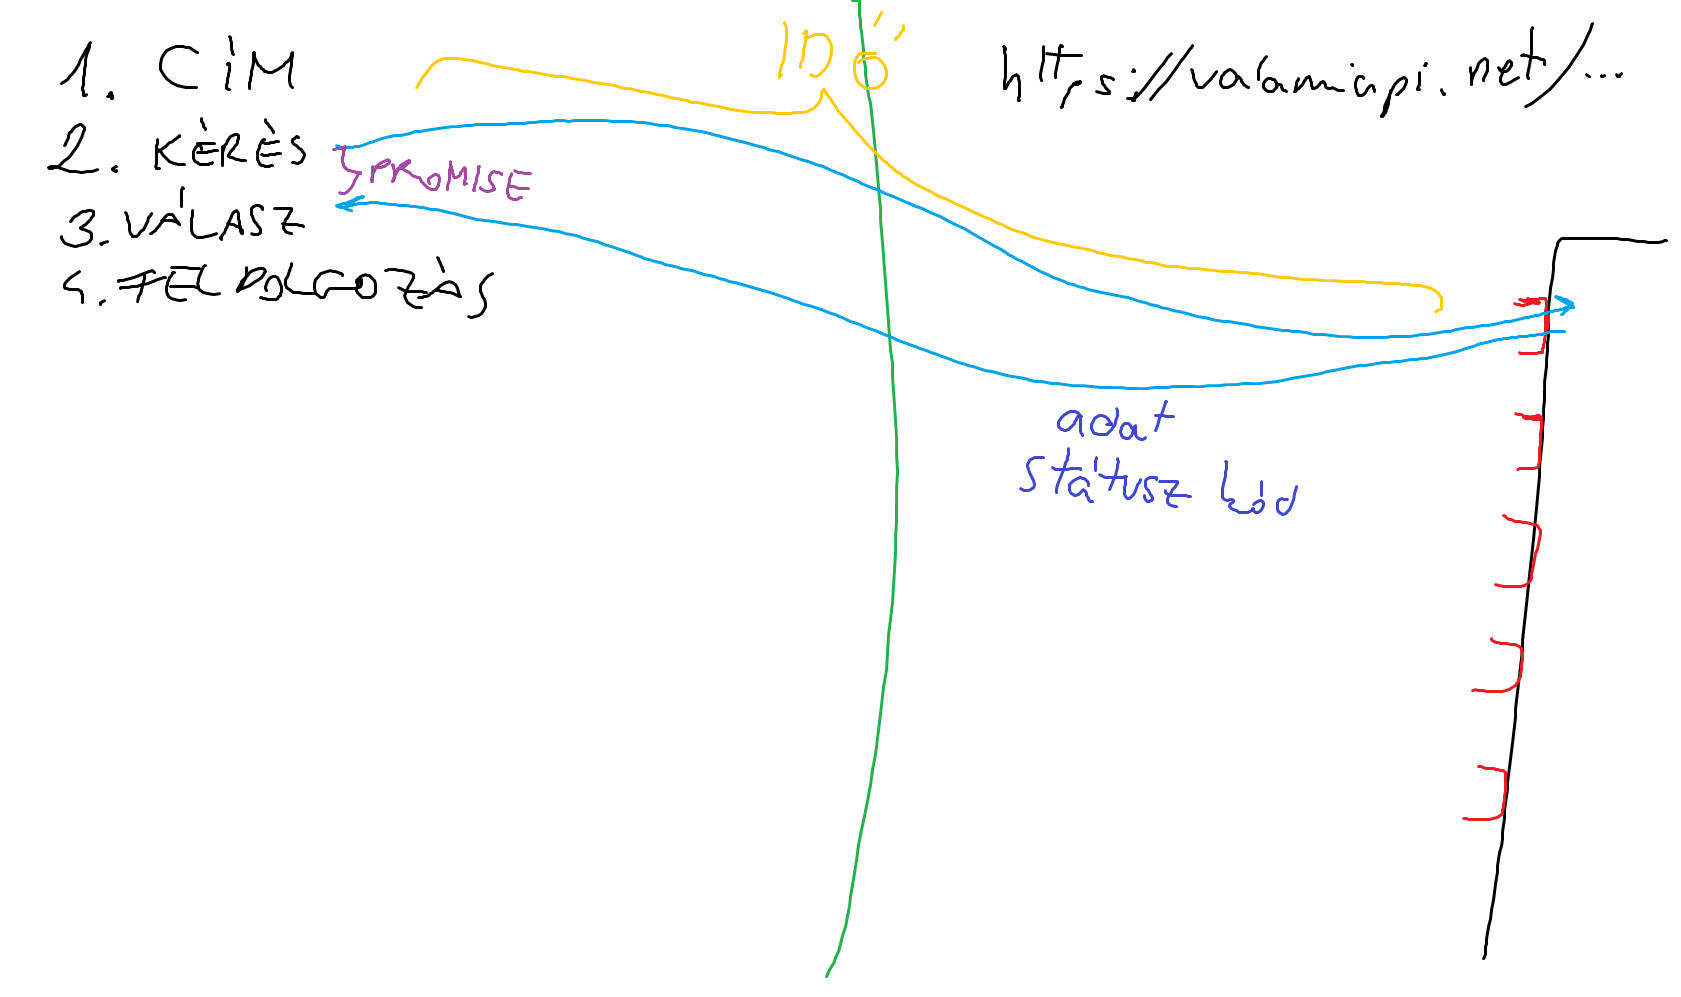 1. CÍM
2. KÉRÉS
3. VÁLASZ
4. FELDOLGOZÁS
PROMISE
IDŐ
https://valamiapi.net/...
adat
státusz kód